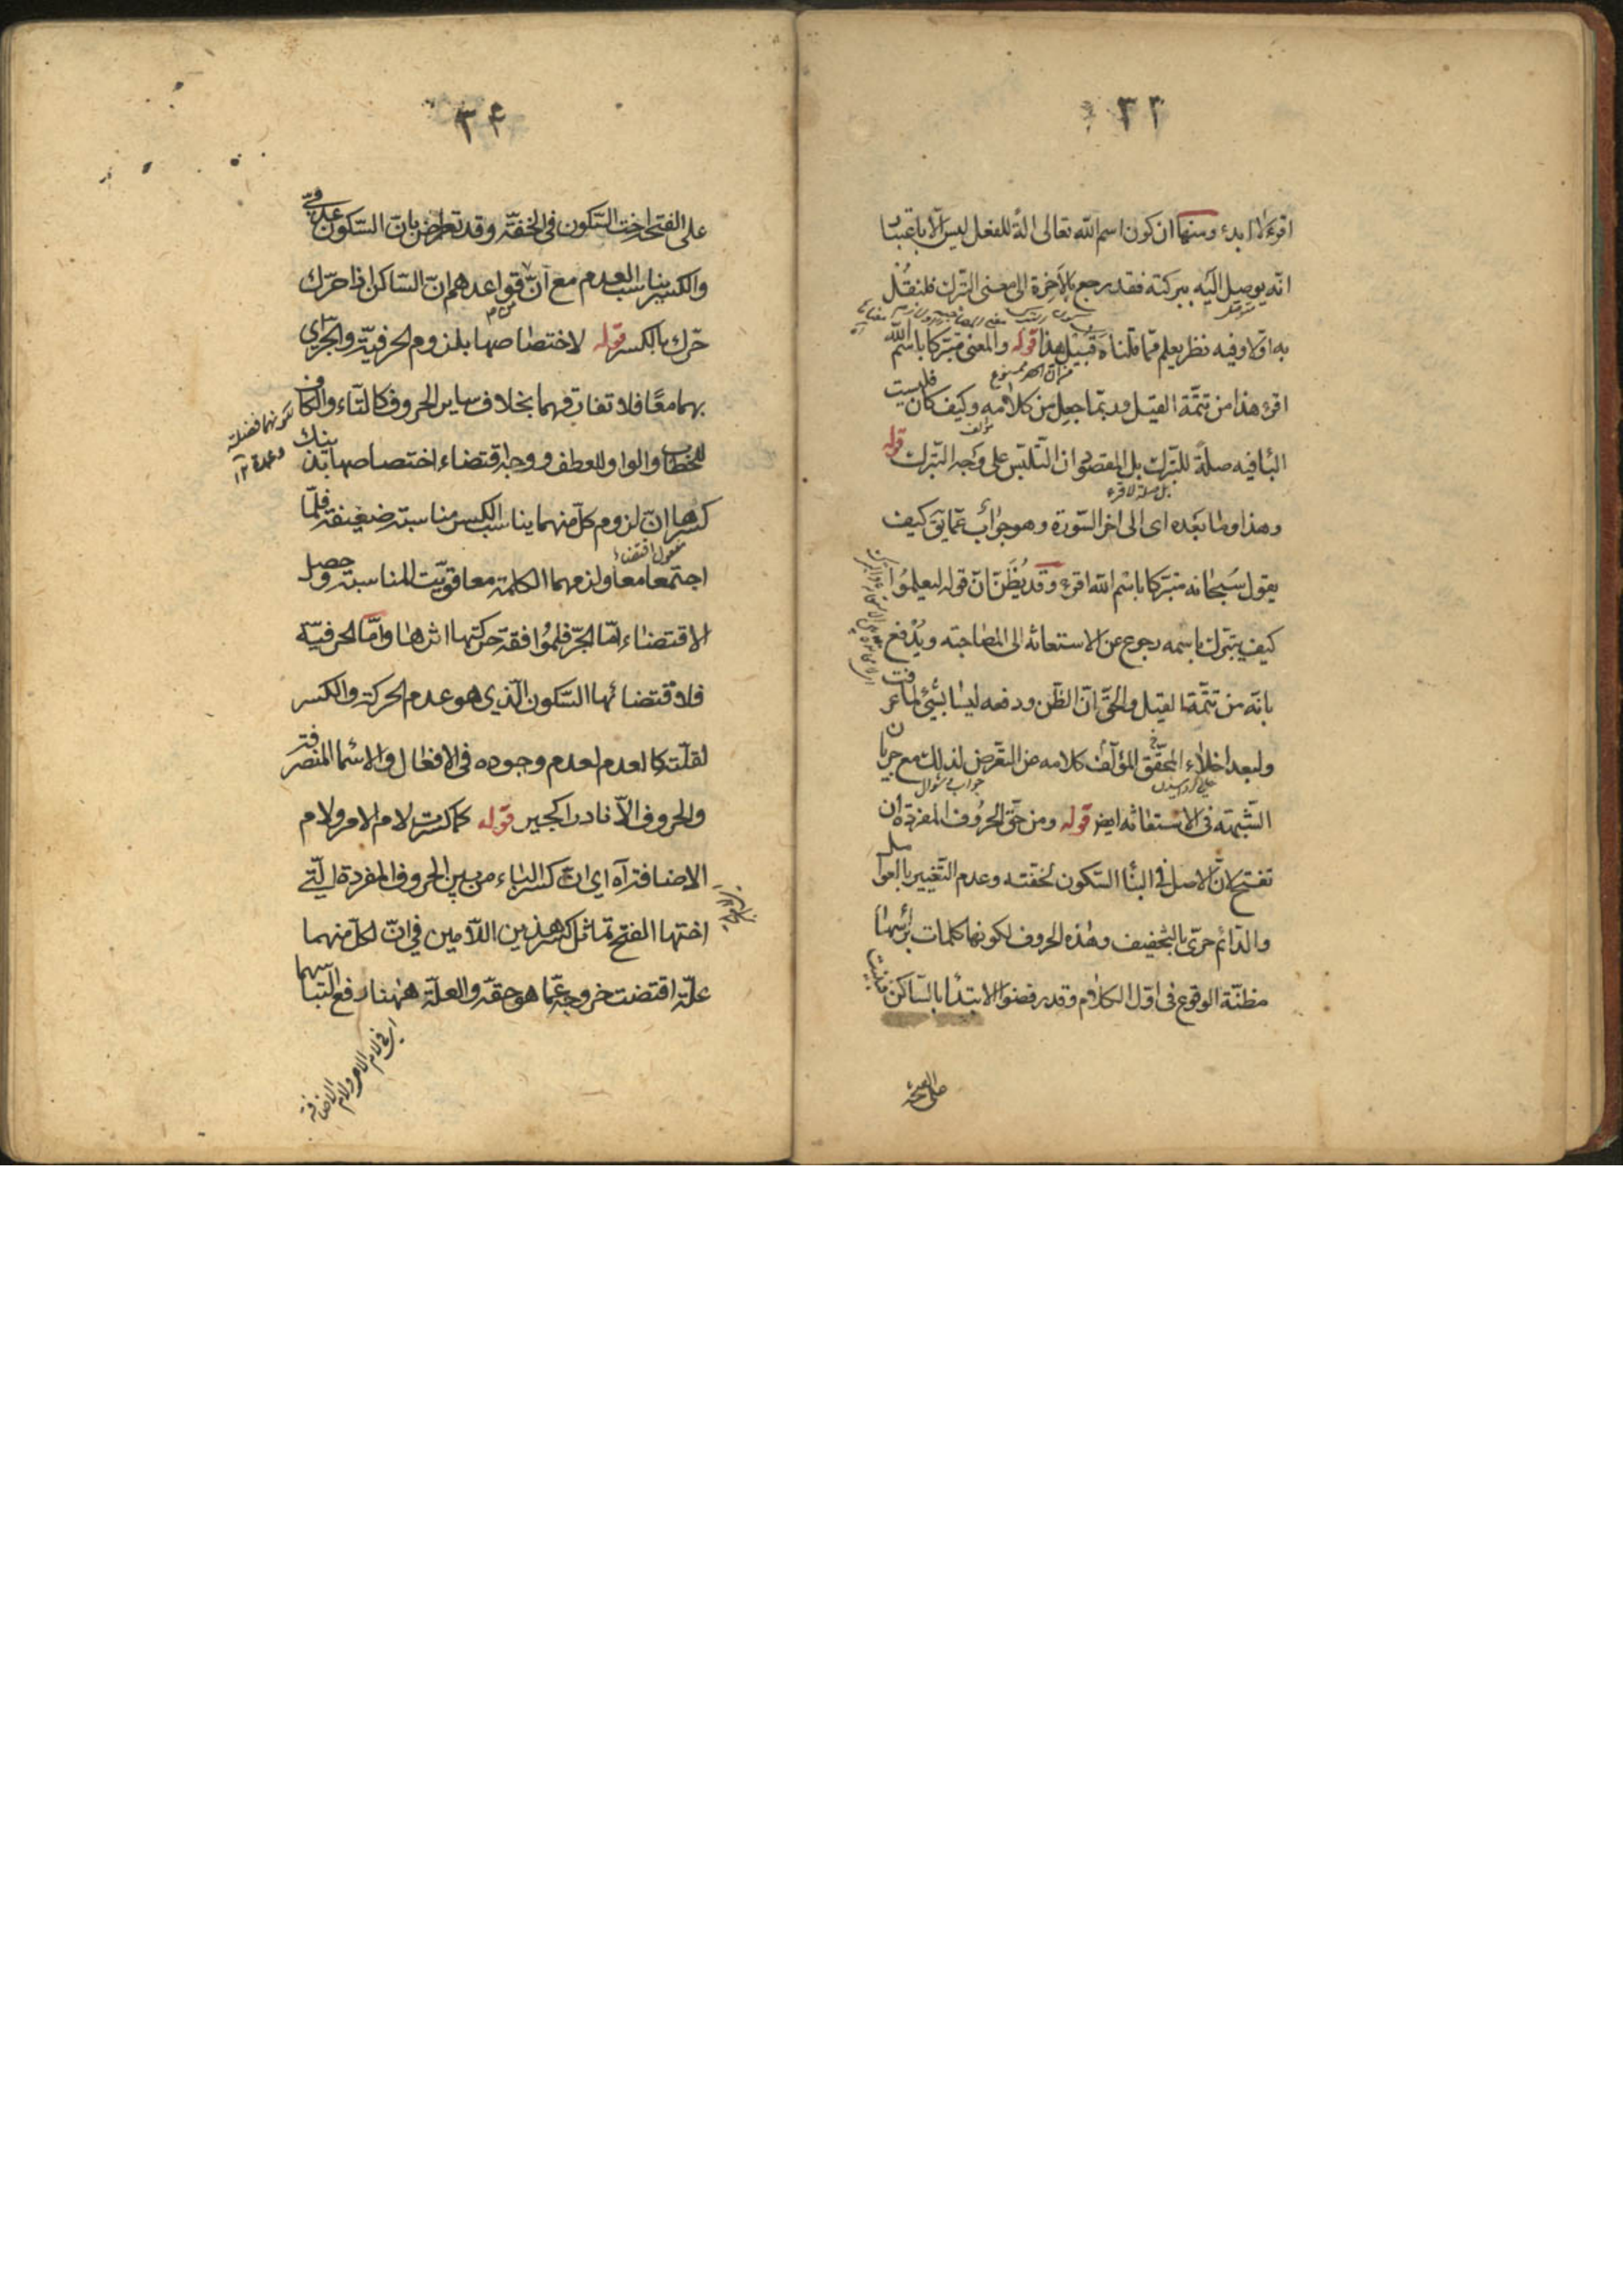 ٣٣
اقرء لا ابدء ومنها ان كون اسم الله تعالى الة للفعل ليس الّا باعتبار
انّه يوصل اليه ببركته فقد رجع بالاخرة الى معنى التبرك فلنقل
به اوّلا وفيه نظر يعلم ممّا قلناه قبيل هذا قوله والمعنى متبرّكا باسم الله
اقرء هذا من تتمّة القيل وربّما جعل من كلامه وكيف كان فليست
البا فيه صلةً للتبرك بل المقصود ان التلبّس على وجه التبرك قوله
وهذا وما بعده اى الى اخر السّورة وهو جواب عمّا يق كيف
يقول سبحانه متبرّكا باسم الله اقرء وقد يُظَنّ انّ قوله ليعلموا
كيف يتبرّك باسمه رجوع عن الاستعانه الى المصاحبته ويُدفع
بانّه من تتمّة القيل والحقّ انّ الظّن ودفعه ليسا بشئ لما عرفت
ولبعد اخلاء المحقّق المؤلّف كلامه عن التعرّض لذلك مع جريان
الشّبهته فى الاستعانه ايض قوله ومن حقّ الحرُوف المفردة ان
تفتح لانّ الاصل فى البنا السّكون لخفّته وعدم التّغيير بالعوامل
والدّائم حرىّ بالتخفيف وهذه الحروف لكونها كلمات برأسها
مظنّة الوقوع فى اوّل الكلام وقد رفضوا الابتدا بالسّاكن فبنيت
على الفتحة
٣٤
على الفتح اخت السّكون فى الخفّة وقد تعارض بانّ السّكون عدمىّ
والكسر يناسب العدم مع انّ من قواعدهم انّ السّاكن اذا حرّك
حرّك بالكسر قوله لاختصاصها بلزوم الحرفيّة والجرّ اى
بهما معًا فلا تفارقهما بخلاف ساير الحروف كالتاء والكاف
للخطاب والواو للعطف ووجه اقتضاء اختصاصها بذينك
كسرها انّ لزوم كلّ منهما يناسب الكسر مناسبة ضعيفة فلمّا
اجتمعا معا ولزمهما الكلمة معا قويّت المناسبة وحصل
الاقتضاء امّا الجرّ فلموافقة حركتها اثرها وامّا الحرفيّة
فلاقتضائها السّكون الّذى هو عدم الحركة والكسر
لقلّته كالعدم لعدم وجوده فى الافعال والاسما المنصرفة
والحروف الّا نادرا كجير قوله كما كسرت لام الامر ولام
الاضافة آه اى انّ كسر الباء من بين الحروف المفردة الّتى
اختها الفتح تماثل كسر هذين اللّامين فى انّ لكلّ منهما
علّة اقتضت خروجه عمّا هو حقّه والعلّة ههنا رفع التباسهما
اى فى لام الامر ولام الاضافة